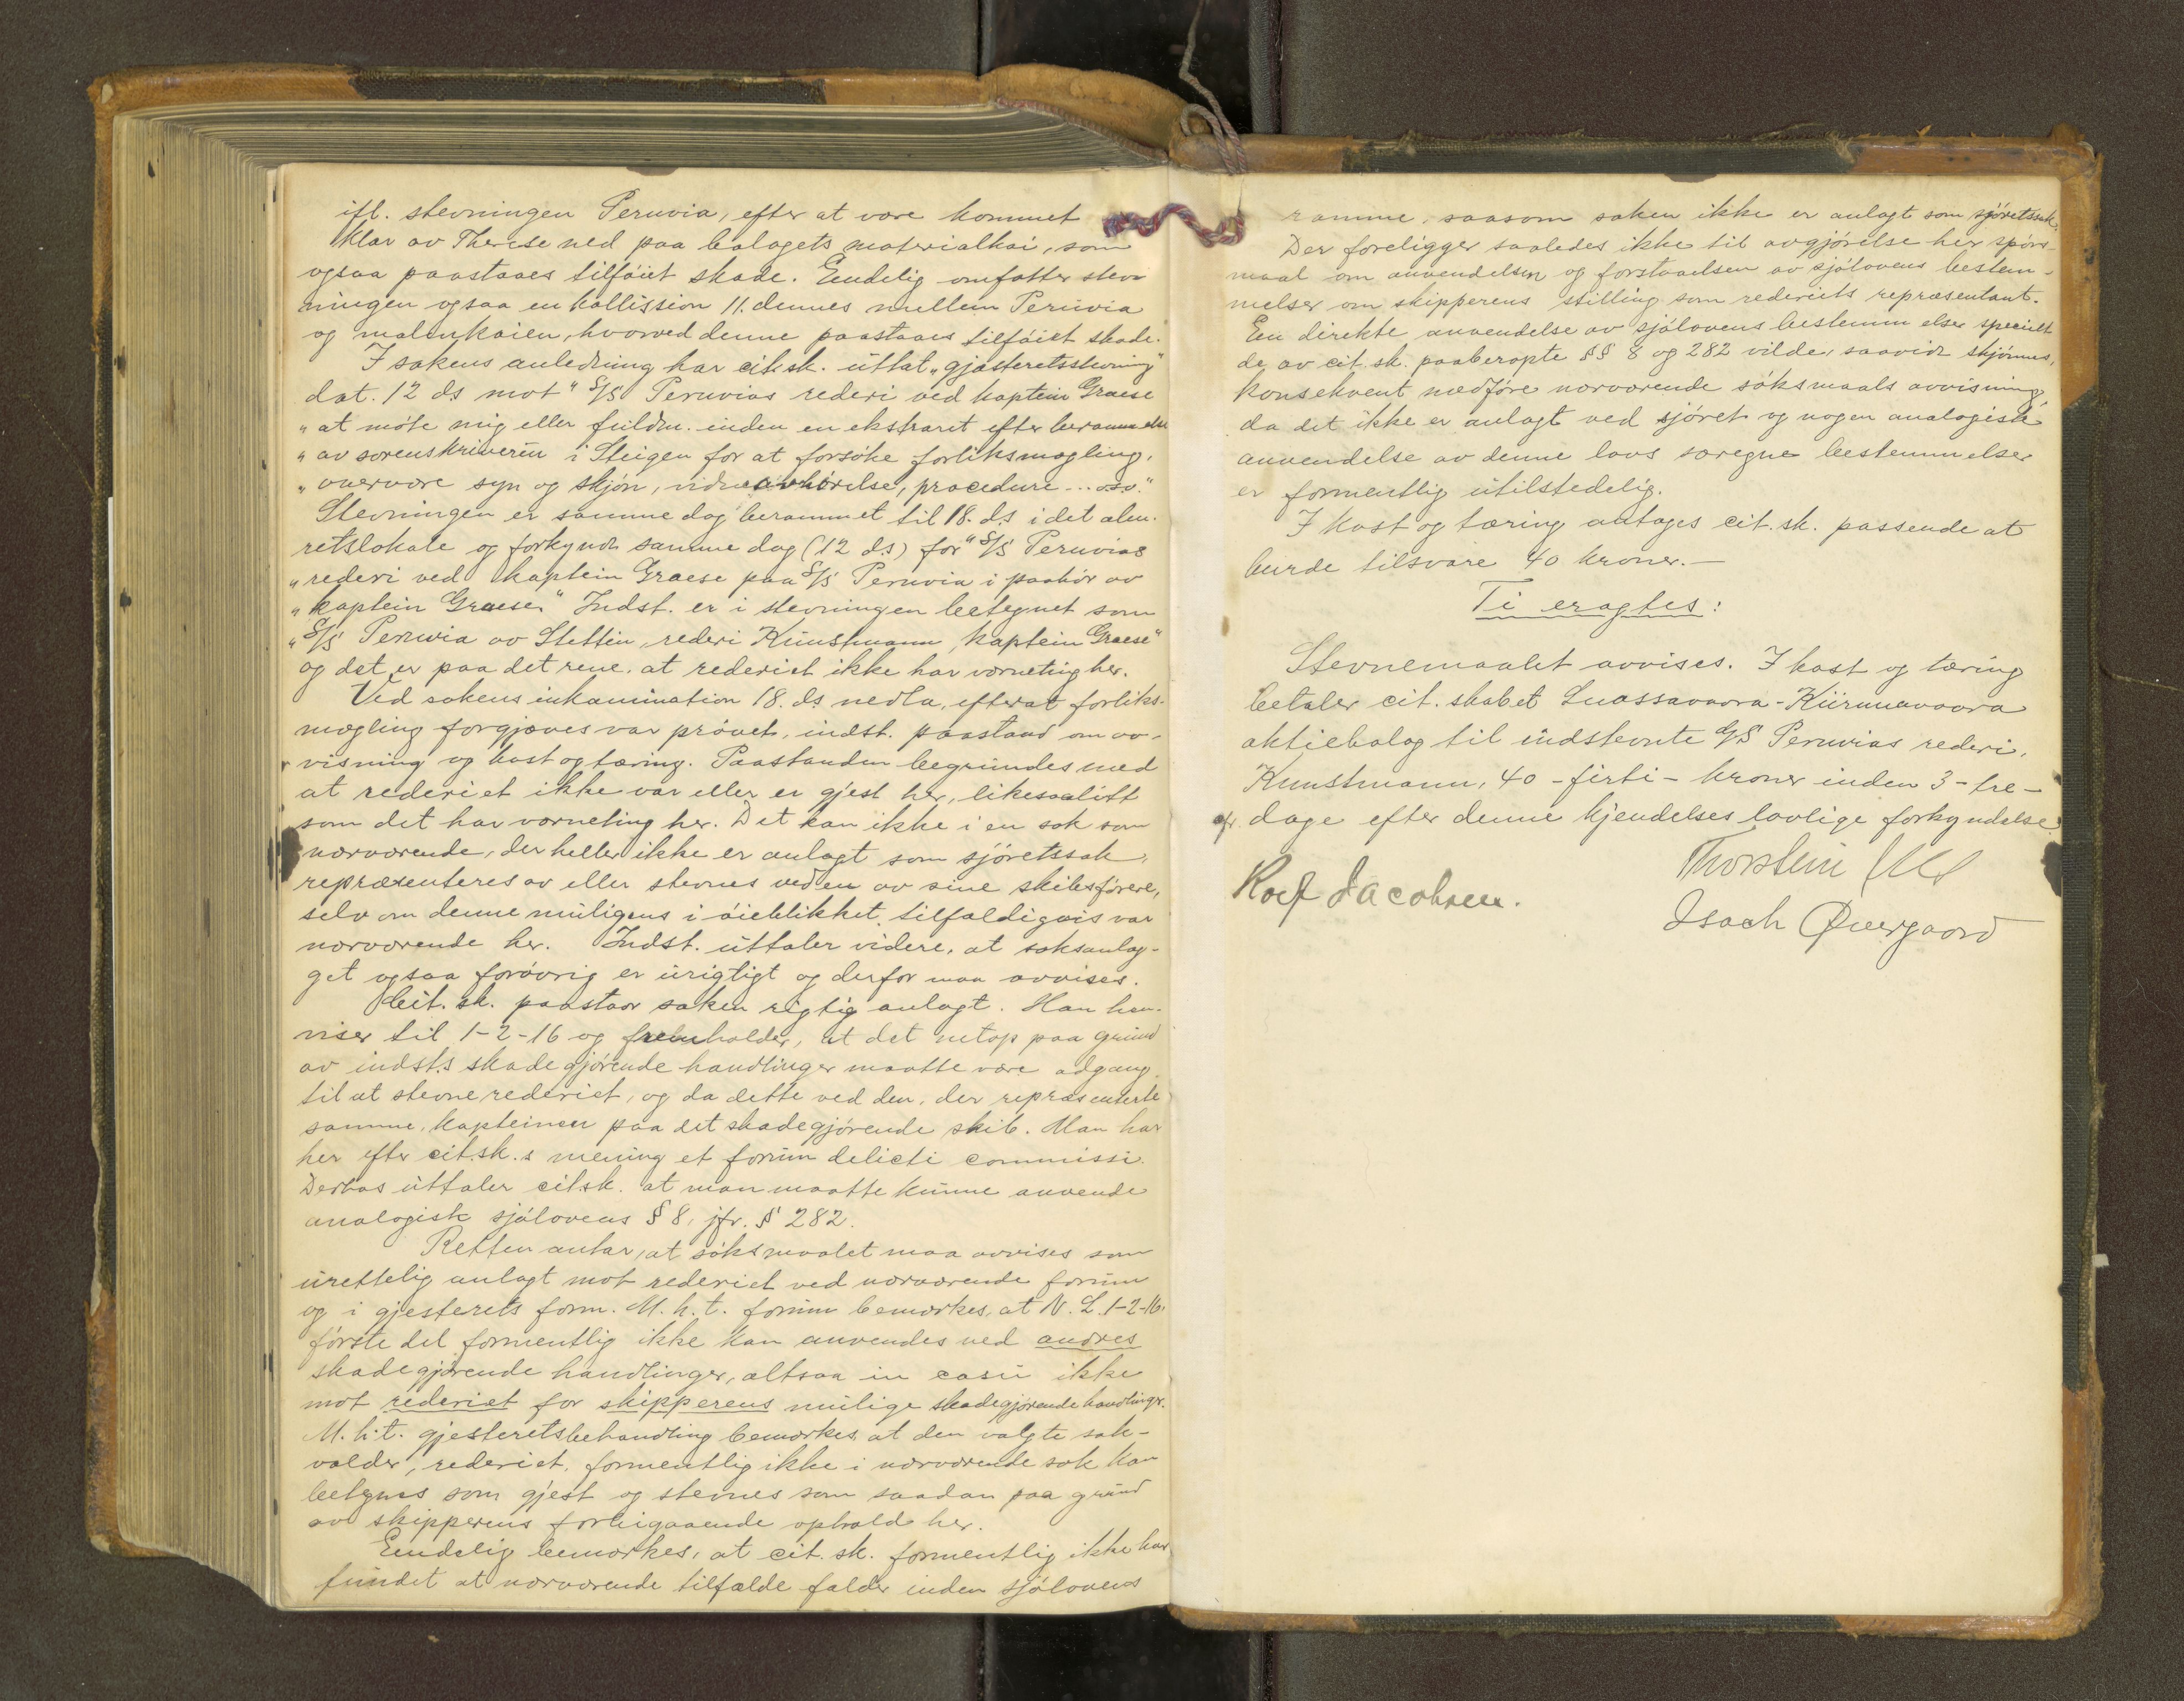 ifl. stevningen Peruvia, efter at være kommet
klar av Therese ned paa bolagets materialkai, som
ogsaa paastaaes tilføiet skade. Endelig omfatter stev-
ningen ogsaa en kollission 11. dennes mellem Peruvia
og malmkaien, hvorved denne paastaaes tilføiet skade.
I sakens anledning har cit.sk. uttat "gjæsteretsstevning"
dat. 12 ds mot "S/S Peruvias rederi ved kaptein Graese
"at møte mig eller fuldm. inden en ekstraret efter berammelse
"av sorenskriveren i Steigen for at forsøke forliksmægling,
"overvære syn og skjøn, vidneavhørelse, procedure ... o.s.v."
Stevningen er samme dag berammet til 18. ds i det alm.
retslokale og forkyndt samme dag (12 ds) for "S/S Peruvias
"rederi ved kaptein Graese paa S/S Peruvia i paahør av
"kaptein Graese." Indst. er i stevningen betegnet som
"S/S Peruvia av Stettin, rederi Kunstmann, kaptein Graese"
og det er paa det rene, at rederiet ikke har værneting her.
Ved sakens inkamination 18. ds nedla, efterat forliks-
mægling forgjæves var prøvet, indst. paastand om av-
visning og kost og tæring. Paastanden begrundes med
at rederiet ikke var eller er gjest her, likesaalitt
som det har værneting her. Det kan ikke i en sak som
nærværende, der heller ikke er anlagt som sjøretssak,
repræsenteres av eller stevnes ved en av sine skibsførere,
selv om denne muligens i øieblikket tilfældigvis var
nærværende her. Indst. uttaler videre, at saksanlæg-
get ogsaa forøvrig er urigtigt og derfor maa avvises.
Cit. sk. paastaar saken rigtig anlagt. Han hen-
viser til 1-2-16 og fremholder, at det netop paa grund
av indst.s skadegjørende handlinger maatte være adgang
til at stevne rederiet, og da dette ved den, der repræsenterte
samme, kapteinen paa det skadegjørende skib. Man har
her efter cit.sk.s mening et forum delicti commissi.
Derhos uttaler cit.sk. at man maatte kunne anvende
analogisk sjølovens § 8, jfr. § 282.
Retten antar, at søksmaalet maa avvises som
urettelig anlagt mot rederiet ved nærværende forum
og i gjesterets form. M.h.t. forum bemerkes, at N. L. 1-2-16.
første del formentlig ikke kan anvendes ved andres
skadegjørende handlinger, altsaa in casu ikke
mot rederiet for skipperens mulige skadegjørende handlinger.
M.h.t. gjesteretsbehandling bemerkes, at den valgte sak-
volder, rederiet, formentlig ikke i nærværende sak kan
betegnes som gjest og stevnes som saadan paa grund
av skipperens forbigaaende ophold her.
Endelig bemerkes, at cit. sk. formentlig ikke har
fundet at nærværende tilfælde falder inden sjølovens
ramme, saasom saken ikke er anlagt som sjøretssak.
Der foreligger saaledes ikke til avgjørelse her spørs-
maal om anvendelsen og forstaaelsen av sjølovens bestem-
melser om skipperens stilling som rederiets repræsentant.
En direkte anvendelse av sjølovens bestemmelser specielt
de av cit. sk. paaberopte §§ 8 og 282 vilde, saavidt skjønnes,
konsekvent medføre nærværende søksmaals avvisning,
da det ikke er anlagt ved sjøret og nogen analogisk
anvendelse av denne lovs særegne bestemmelser
er formentlig utilstedelig.
I kost og tæring antages cit. sk. passende at
burde tilsvare 40 kroner.—
Ti eragtes:
Stevnemaalet avvises. I kost og tæring
betaler cit. skabet Luossavaara-Kiirunavaara
aktiebolag til indstevnte S/S Peruvias rederi,
Kunstmann, 40 - firti - kroner inden 3 - tre -
dage efter denne kjendelses lovlige forkyndelse.
Thorstein
Rolf Jacobsen.
Isach Øvergaard